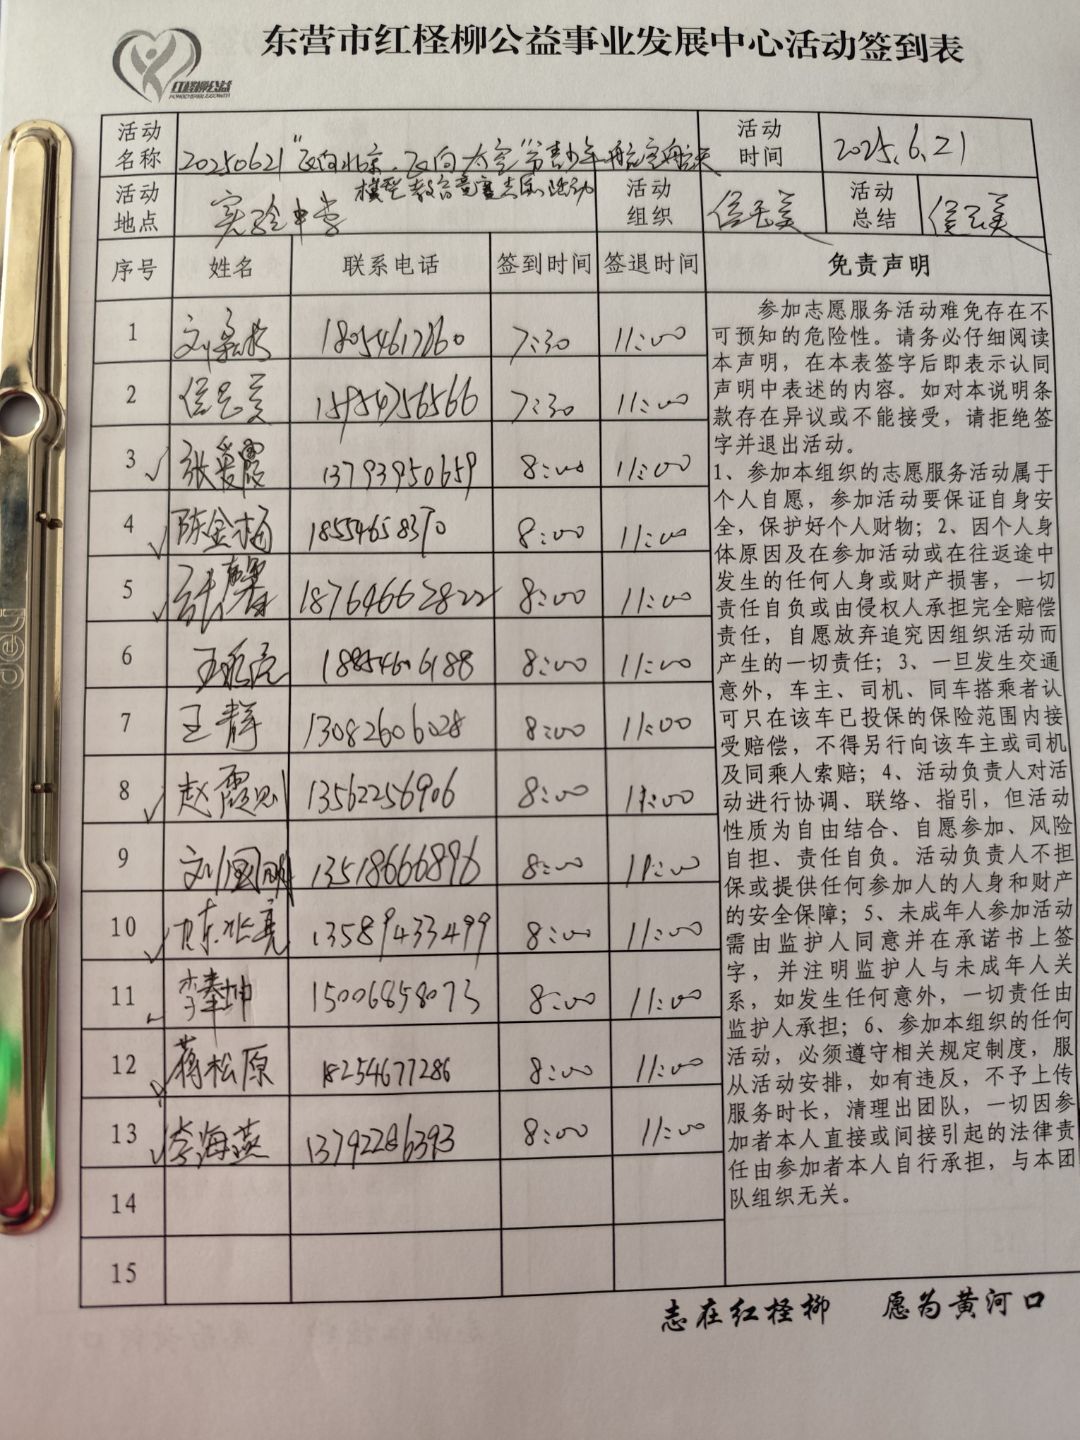 东营市红柽柳公益事业发展中心活动签到表
红柽柳公益
活动名称 20250621“飞向北京·飞向太空”省青少年航空航天模型教育竞赛志愿活动 活动时间 2025.6.21
活动地点 实验中学 活动组织 信云美 活动总结 信云美
序号 姓名 联系电话 签到时间 签退时间 免责声明
1 18054617860 7:30 11:00
2 信云美 15954756566 7:30 11:00
3 张爱霞 13793950659 8:00 11:00
4 陈金桶 18554658370 8:00 11:00
5 张馨 18764662822 8:00 11:00
6 18854606188 8:00 11:00
7 王静 13082606028 8:00 11:00
8 赵霞 13562256906 8:00 11:00
9 刘国明 13518666896 8:00 11:00
10 13589433499 8:00 11:00
11 李奉坤 15006858073 8:00 11:00
12 蒋松原 18254677286 8:00 11:00
13 李海燕 13792286393 8:00 11:00
14
15
参加志愿服务活动难免存在不
可预知的危险性。请务必仔细阅读
本声明，在本表签字后即表示认同
声明中表述的内容。如对本说明条
款存在异议或不能接受，请拒绝签
字并退出活动。
1、参加本组织的志愿服务活动属于
个人自愿，参加活动要保证自身安
全，保护好个人财物；2、因个人身
体原因及在参加活动或在往返途中
发生的任何人身或财产损害，一切
责任自负或由侵权人承担完全赔偿
责任，自愿放弃追究因组织活动而
产生的一切责任；3、一旦发生交通
意外，车主、司机、同车搭乘者认
可只在该车已投保的保险范围内接
受赔偿，不得另行向该车主或司机
及同乘人索赔；4、活动负责人对活
动进行协调、联络、指引，但活动
性质为自由结合、自愿参加、风险
自担、责任自负。活动负责人不担
保或提供任何参加人的人身和财产
的安全保障；5、未成年人参加活动
需由监护人同意并在承诺书上签
字，并注明监护人与未成年人关
系，如发生任何意外，一切责任由
监护人承担；6、参加本组织的任何
活动，必须遵守相关规定制度，服
从活动安排，如有违反，不予上传
服务时长，清理出团队，一切因参
加者本人直接或间接引起的法律责
任由参加者本人自行承担，与本团
队组织无关。
志在红柽柳 愿为黄河口
deli